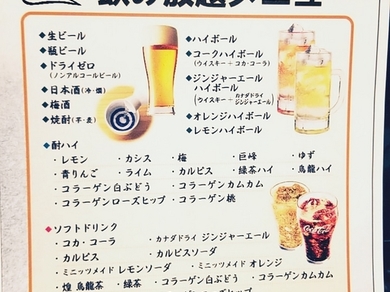 飲み放題メニュー
◆生ビール
◆瓶ビール
◆ドライゼロ
(ノンアルコールビール)
◆日本酒(冷・燗)
◆梅酒
◆焼酎(芋・麦)
◆ハイボール
◆コークハイボール
(ウイスキー+コカ・コーラ)
◆ジンジャーエール
ハイボール
(ウイスキー+カナダドライ ジンジャーエール)
◆オレンジハイボール
◆レモンハイボール
◆酎ハイ
・レモン ・カシス ・梅 ・巨峰 ・ゆず
・青りんご ・ライム ・カルピス ・緑茶ハイ ・烏龍ハイ
・コラーゲン白ぶどう ・コラーゲンカムカム
・コラーゲンローズヒップ ・コラーゲン桃
◆ソフトドリンク
・コカ・コーラ ・カナダドライ ジンジャーエール
・カルピス ・カルピスソーダ
・ミニッツメイド レモンソーダ ・ミニッツメイド オレンジ
・煌 烏龍茶 ・緑茶 ・コラーゲン白ぶどう ・コラーゲンカムカム
Coca-Cola